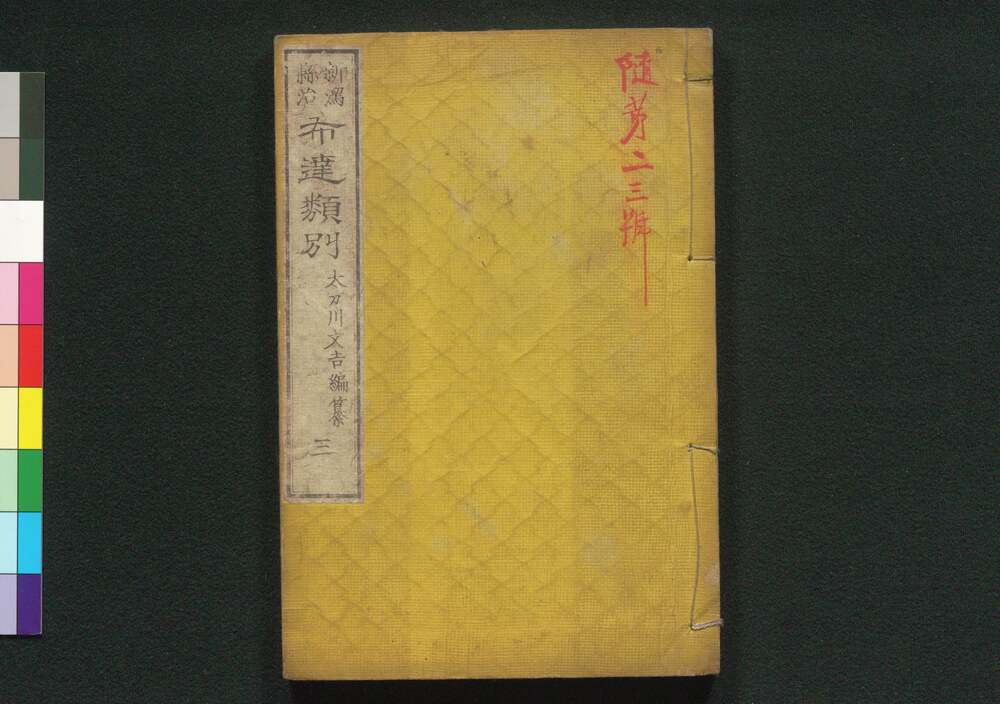 隨第二三號
新潟
縣治
布達類別
太刀川文吉編纂
三